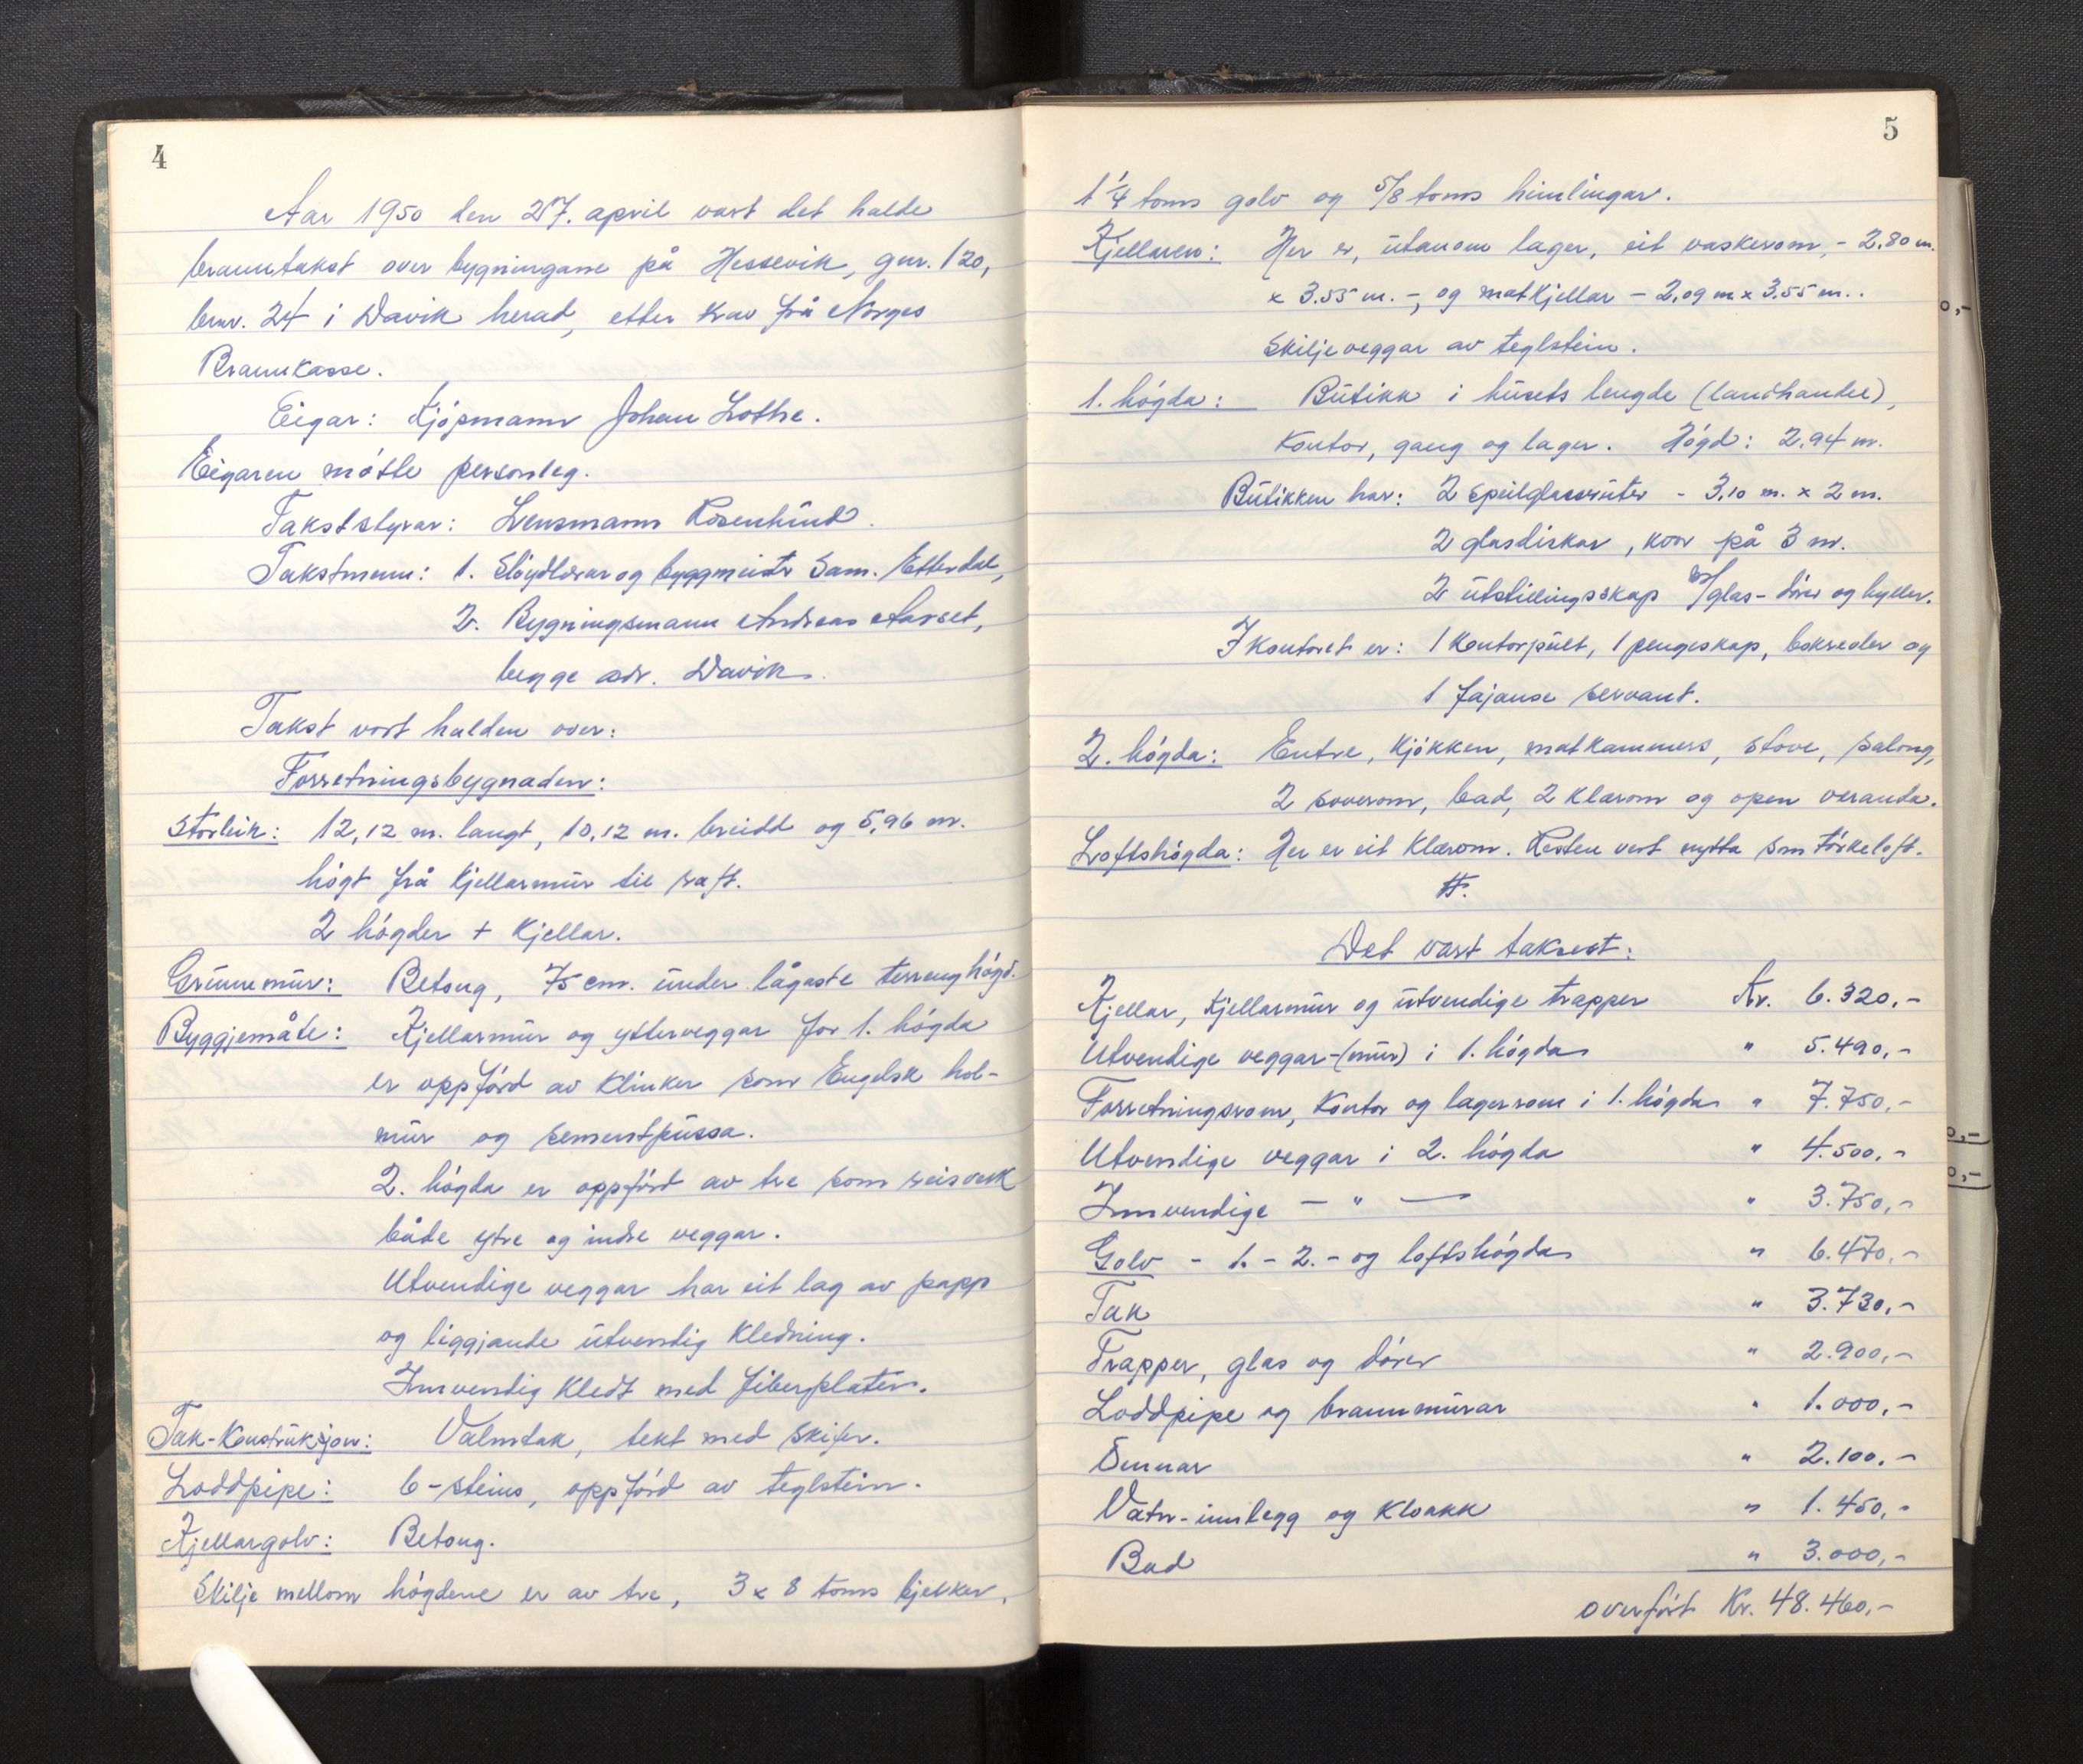 4
Aar 1950 den 27. april vart det halde
branntakst over bygningane på Hessevik, gnr. 120,
bnr. 24 i Davik herad, etter krav frå Norges
Brannkasse.
Eigar: Kjøpmann Johan Lothe.
Eigaren møtte personleg.
Takststyrar: Lensmann Rosenlund.
Takstmenn: 1. Sløydlærar og byggmeister Sam. Etterdal,
2. Bygningsmann Andreas Aarset,
begge adr. Davik.
Takst vart halden over:
Forretningsbygnaden:
Storleik: 12,12 m. langt, 10,12 m. breidd og 5,96 m.
høgt frå kjellarmur til raft.
2 høgder + kjellar.
Grunnmur: Betong, 75 cm. under lågaste terrenghøgd.
Byggjemåte: Kjellarmur og ytterveggar for 1. høgda
er oppførd av klinker som Engelsk hol-
mur og sementpussa.
2. høgda er oppførd av tre som reisverk
både ytre og indre veggar.
Utvendige veggar har eit lag av papp
og liggjande utvendig kledning.
Innvendig kledt med fiberplater.
Tak-Konstruksjon: Valmtak, tekt med skifer.
Loddpipe: 6-steins, oppførd av teglstein.
Kjellargolv: Betong.
Skilje mellom høgdene er av tre, 3 x 8 toms bjelker,
5
1 1/4 toms golv og 5/8 toms himlingar.
Kjellaren: Her er, utanom lager, eit vaskerom, - 2,80 m.
x 3.55 m. -, og matkjellar - 2,09 m x 3,55 m..
Skiljeveggar av teglstein.
1. høgda: Butikk i husets lengde (landhandel),
kontor, gang og lager. Høgd: 2,94 m.
Butikken har: 2 speilglassruter - 3,10 m. x 2 m.
2 glasdiskar, kvar på 3 m.
2 utstillingsskap m/glas-dører og hyller.
I kontoret er: 1 kontorpult, 1 pengeskap, bokreoler og
1 fajanse servant.
2. høgda: Entre, kjøkken, matkammers, stove, salong,
2 soverom, bad, 2 klærom og open veranda.
Loftshøgda: Her er eit klærom. Resten vert nytta som tørkeloft.
Det vart taksert:
Kjellar, kjellarmur og utvendige trapper Kr. 6.320,-
Utvendige veggar-(mur) i 1. høgda " 5.490,-
Forretningsrom, kontor og lagerrom i 1. høgda " 7.750,-
Utvendige veggar i 2. høgda " 4.500,-
Innvendige - " - " 3.750,-
Golv - 1. - 2. - og loftshøgda " 6.470,-
Tak " 3.730,-
Trapper, glas og dører " 2.900,-
Loddpipe og brannmurar " 1.000,-
Omnar " 2.100,-
Vatn-innlegg og kloakk " 1.450,-
Bad " 3.000,-
overført Kr. 48.460,-